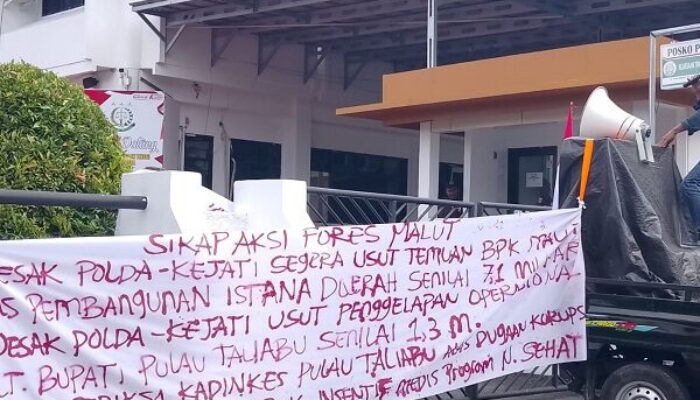 POSKO P
SIKAP AKSI FORES MALUT
DESAK POLDA-KEJATI SEGERA USUT TEMUAN BPK MALUT
S PEMBANGUNAN ISTANA DAERAH SENILAI 7.1 MILIAR
DESAK POLDA-KEJATI USUT PENGGELAPAN OPERASIONAL
LT. BUPATI PULAU TALIABU SENILAI 1,3 M.
KADINKES PULAU TALIABU ATAS DUGAAN KORUPS
INSENTIF MEDIS Program N. SEHAT